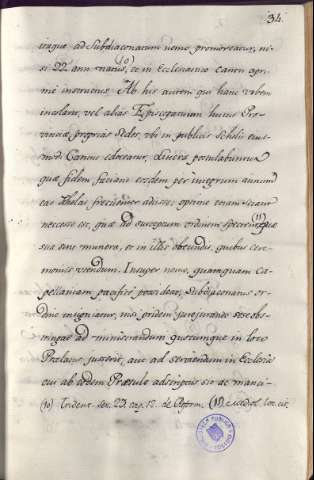 34.
itaque ad Subdiaconatum nemo promoveatur, ni-
si 22 ann. natus, (10) et in Ecclesiastico Cantu opti-
me instructus. Ab his autem qui hanc Urbem
incolant, vel alias Episcopatuum huius Pro-
vinciæ proprias Sedes, ubi in publicis Scholis eius-
modi Cantus edocetur, litteræ postulabuntur
quæ fidem faciant eosdem per integrum annum
eas Scholas frequenter adiisse; optime enim sciant
necesse est, quæ ad susceptum ordinem spectent, (11) quæ
sua sint munera, et in illis obeundis, quibus cere-
moniis utendum. Insuper nemo, quamquam Ca-
pellaniam pacifice possideat, Subdiaconatus or-
dine insigniatur, nisi pridem jurejurando sese obs-
tringat ad ministrandum quocumque in loco
Prælatus jusserit, aut ad serviendum in Ecclesia
cui ab eodem Præsule adscriptus sit ac manci-
(10) Trident. ses. 23. cap. 12. de Reform. (11) Mediol. loc. cit.